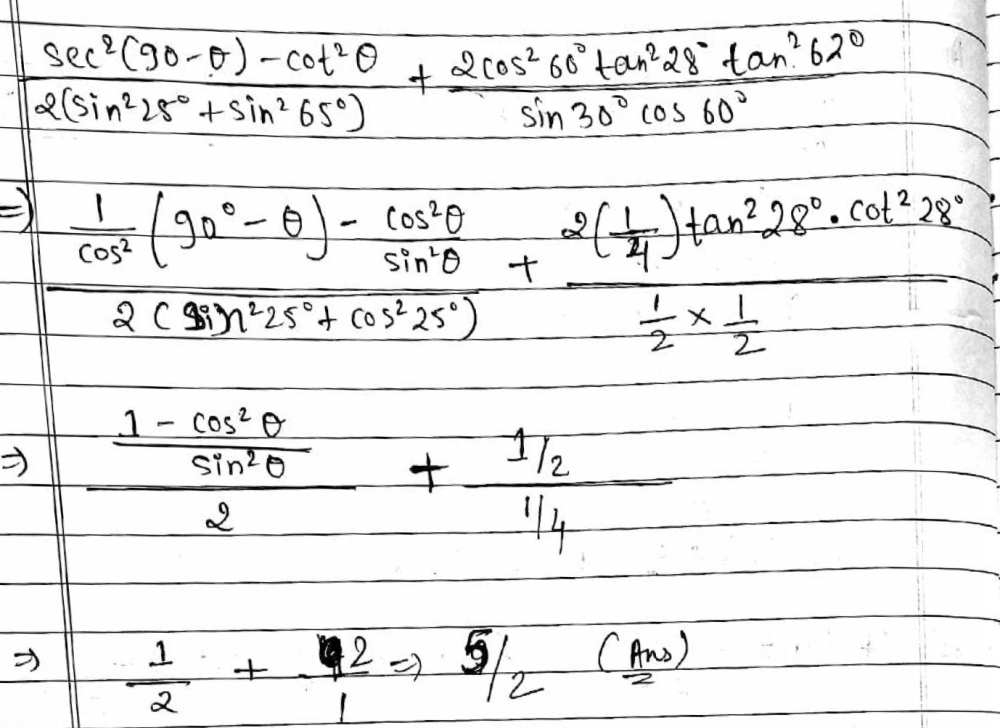 sec²(90-θ) - cot²θ / 2(sin²25° + sin²65°) + 2cos²60° tan²28° tan²62° / sin30° cos 60°
⇒ 1/cos² (90° - θ) - cos²θ/sin²θ / 2(sin²25° + cos²25°) + 2(1/4)tan²28° · cot²28° / 1/2 × 1/2
⇒ 1 - cos²θ / sin²θ / 2 + 1/2 / 1/4
⇒ 1/2 + 2/1 ⇒ 5/2 (Ans)